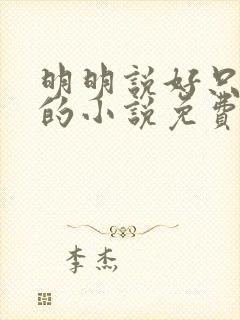 明明說好只
的小說免費
李杰